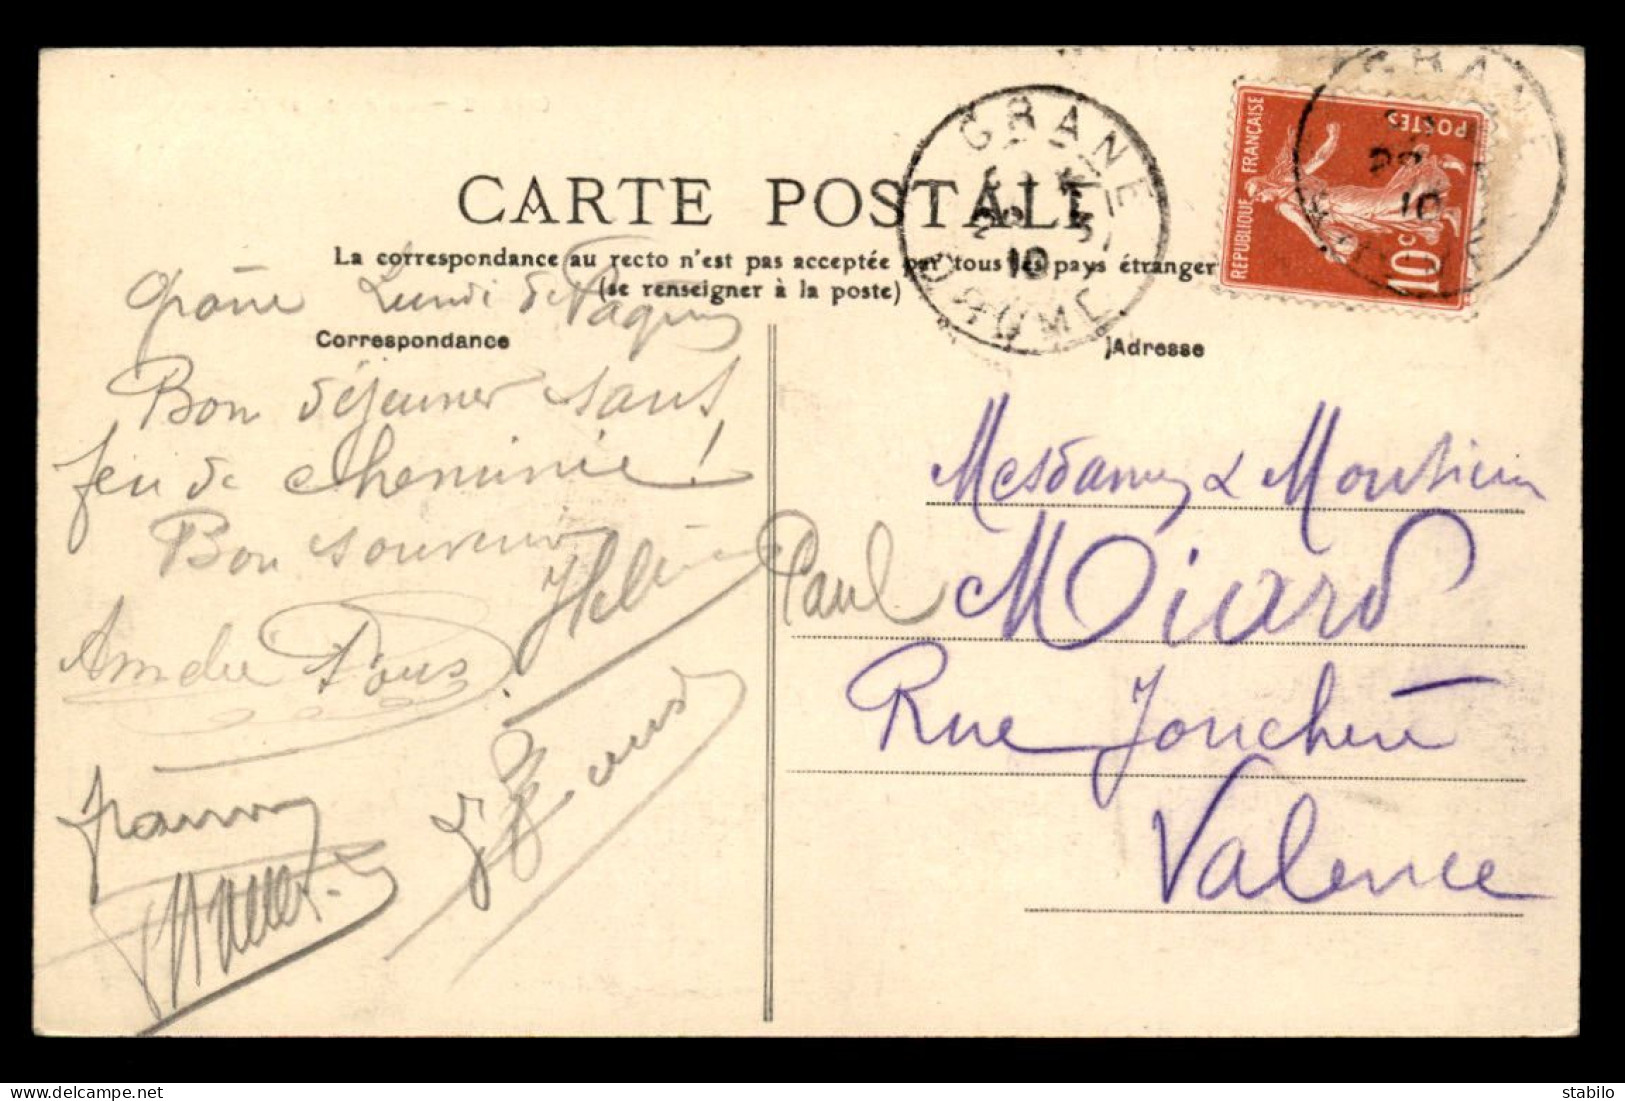 CARTE POSTALE
La correspondance au recto n'est pas acceptée par tous les pays étranger
(se renseigner à la poste)
Correspondance
Adresse
GRANE
10
DROME
REPUBLIQUE FRANÇAISE
POSTES
10c
GRANE
10
Grane Lundi de Paques
Bon déjeuner sans
feu de cheminie!
Bon souvenir
Hélène
Amélie Pous
Mesdames & Monsieur
Paul Miard
Rue Jonchère
Valence
stabilo